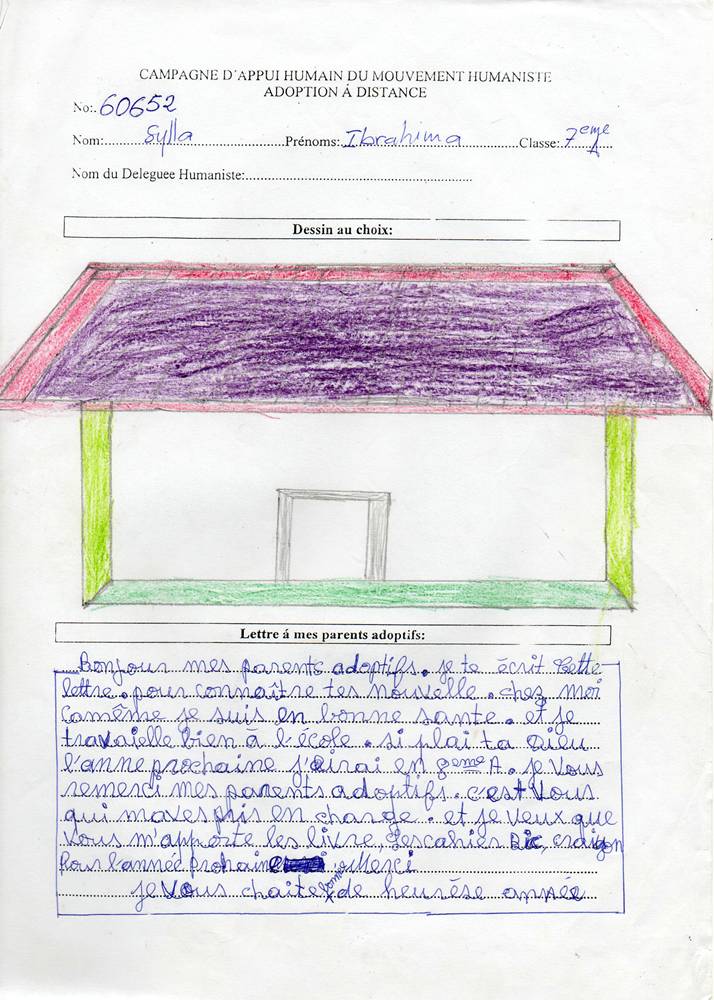 CAMPAGNE D'APPUI HUMAIN DU MOUVEMENT HUMANISTE
ADOPTION Á DISTANCE
No:. 60652
Nom: Sylla Prénoms: Ibrahima Classe: 7eme A
Nom du Deleguee Humaniste:
Dessin au choix:
Lettre á mes parents adoptifs:
Bonjour mes parents adoptifs. je te écrit Cette
lettre. pour connaître tes nouvelle. chez moi
camême je suis en bonne sante. et je
travaielle bien à l'école. si plai ta Dieu
l'anne prochaine j'airai en 8eme A. je Vous
remerci mes parents adoptifs. c'est Vous
qui maves pris en charge. et je veux que
Vous m'apporte les livre, Les cahier Bic, craiyon
Pour l'année Prohaine Merci
je Vous chaite bonne de heurèse année